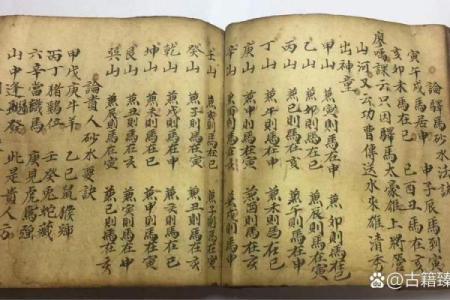 論驛馬砂水法訣
寅午戌馬居申 申子辰馬到寅
亥卯未馬在巳 巳酉丑馬在亥
云只因驛馬太豪雄上將
山河又云功曹傳送水來雄清
出神堂
甲山 兼寅則馬在申 兼卯則馬在巳
乙山 兼卯則馬在巳 兼辰則馬在寅
丙山 兼巳則馬在亥 兼午則馬在申
丁山 兼午則馬在申 兼未則馬在巳
庚山 兼申則馬在寅 兼酉則馬在亥
辛山 兼酉則馬在亥 兼戌則馬在申
壬山 則馬在
癸山 兼子則馬在寅 兼丑則馬在亥
乾山 兼戌則馬在申 兼亥則馬在巳
坤山 兼未則馬在巳 兼申則馬在寅
艮山 兼丑則馬在亥 兼寅則馬在申
巽山 兼辰則馬在寅 兼巳則馬在亥
論貴人砂水要訣
甲戊庚牛羊 乙己鼠猴
丙丁猪鷄位 壬癸兔蛇藏
六辛當 馬 庚見虎馬
山中逢 此是貴人
百家号@古籍臻